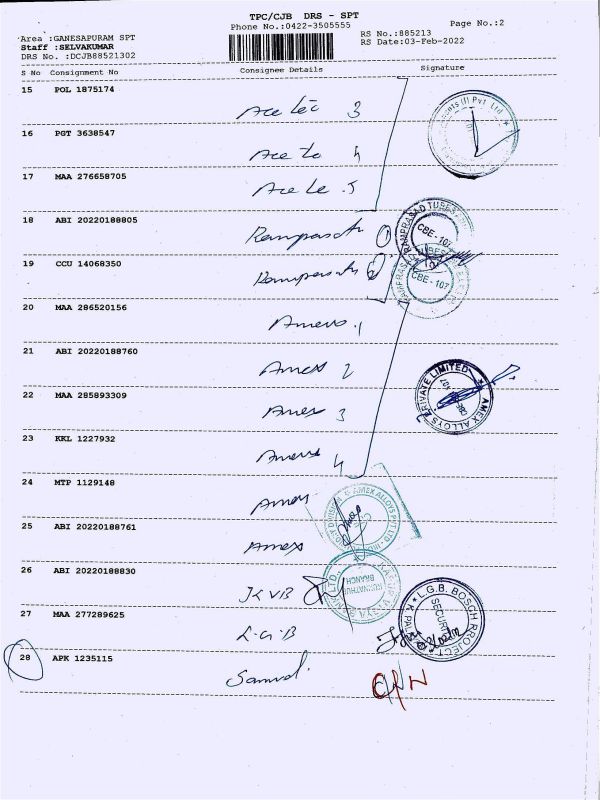 TPC/CJB DRS - SPT
Phone No.:0422-3505555
Page No.:2
Area :GANESAPURAM SPT
Staff :SELVAKUMAR
DRS No. :DCJB88521302
RS No.:885213
RS Date:03-Feb-2022
S No Consignment No Consignee Details Signature
15 POL 1875174
3
16 PGT 3638547
4
17 MAA 276658705
5
18 ABI 20220188805
RAMPRASAD TUBES
CBE - 107
19 CCU 14068350
CBE - 107
20 MAA 286520156
1
21 ABI 20220188760
Amex 2
22 MAA 285893309
Amex 3
AMEX ALLOYS PRIVATE LIMITED
23 KKL 1227932
4
24 MTP 1129148
Amex
AMEX ALLOYS PVT LTD
25 ABI 20220188761
Amex
26 ABI 20220188830
JKVB
BRANCH
27 MAA 277289625
L.G.B
L.G.B. BOSCH PROJECT
28 APK 1235115